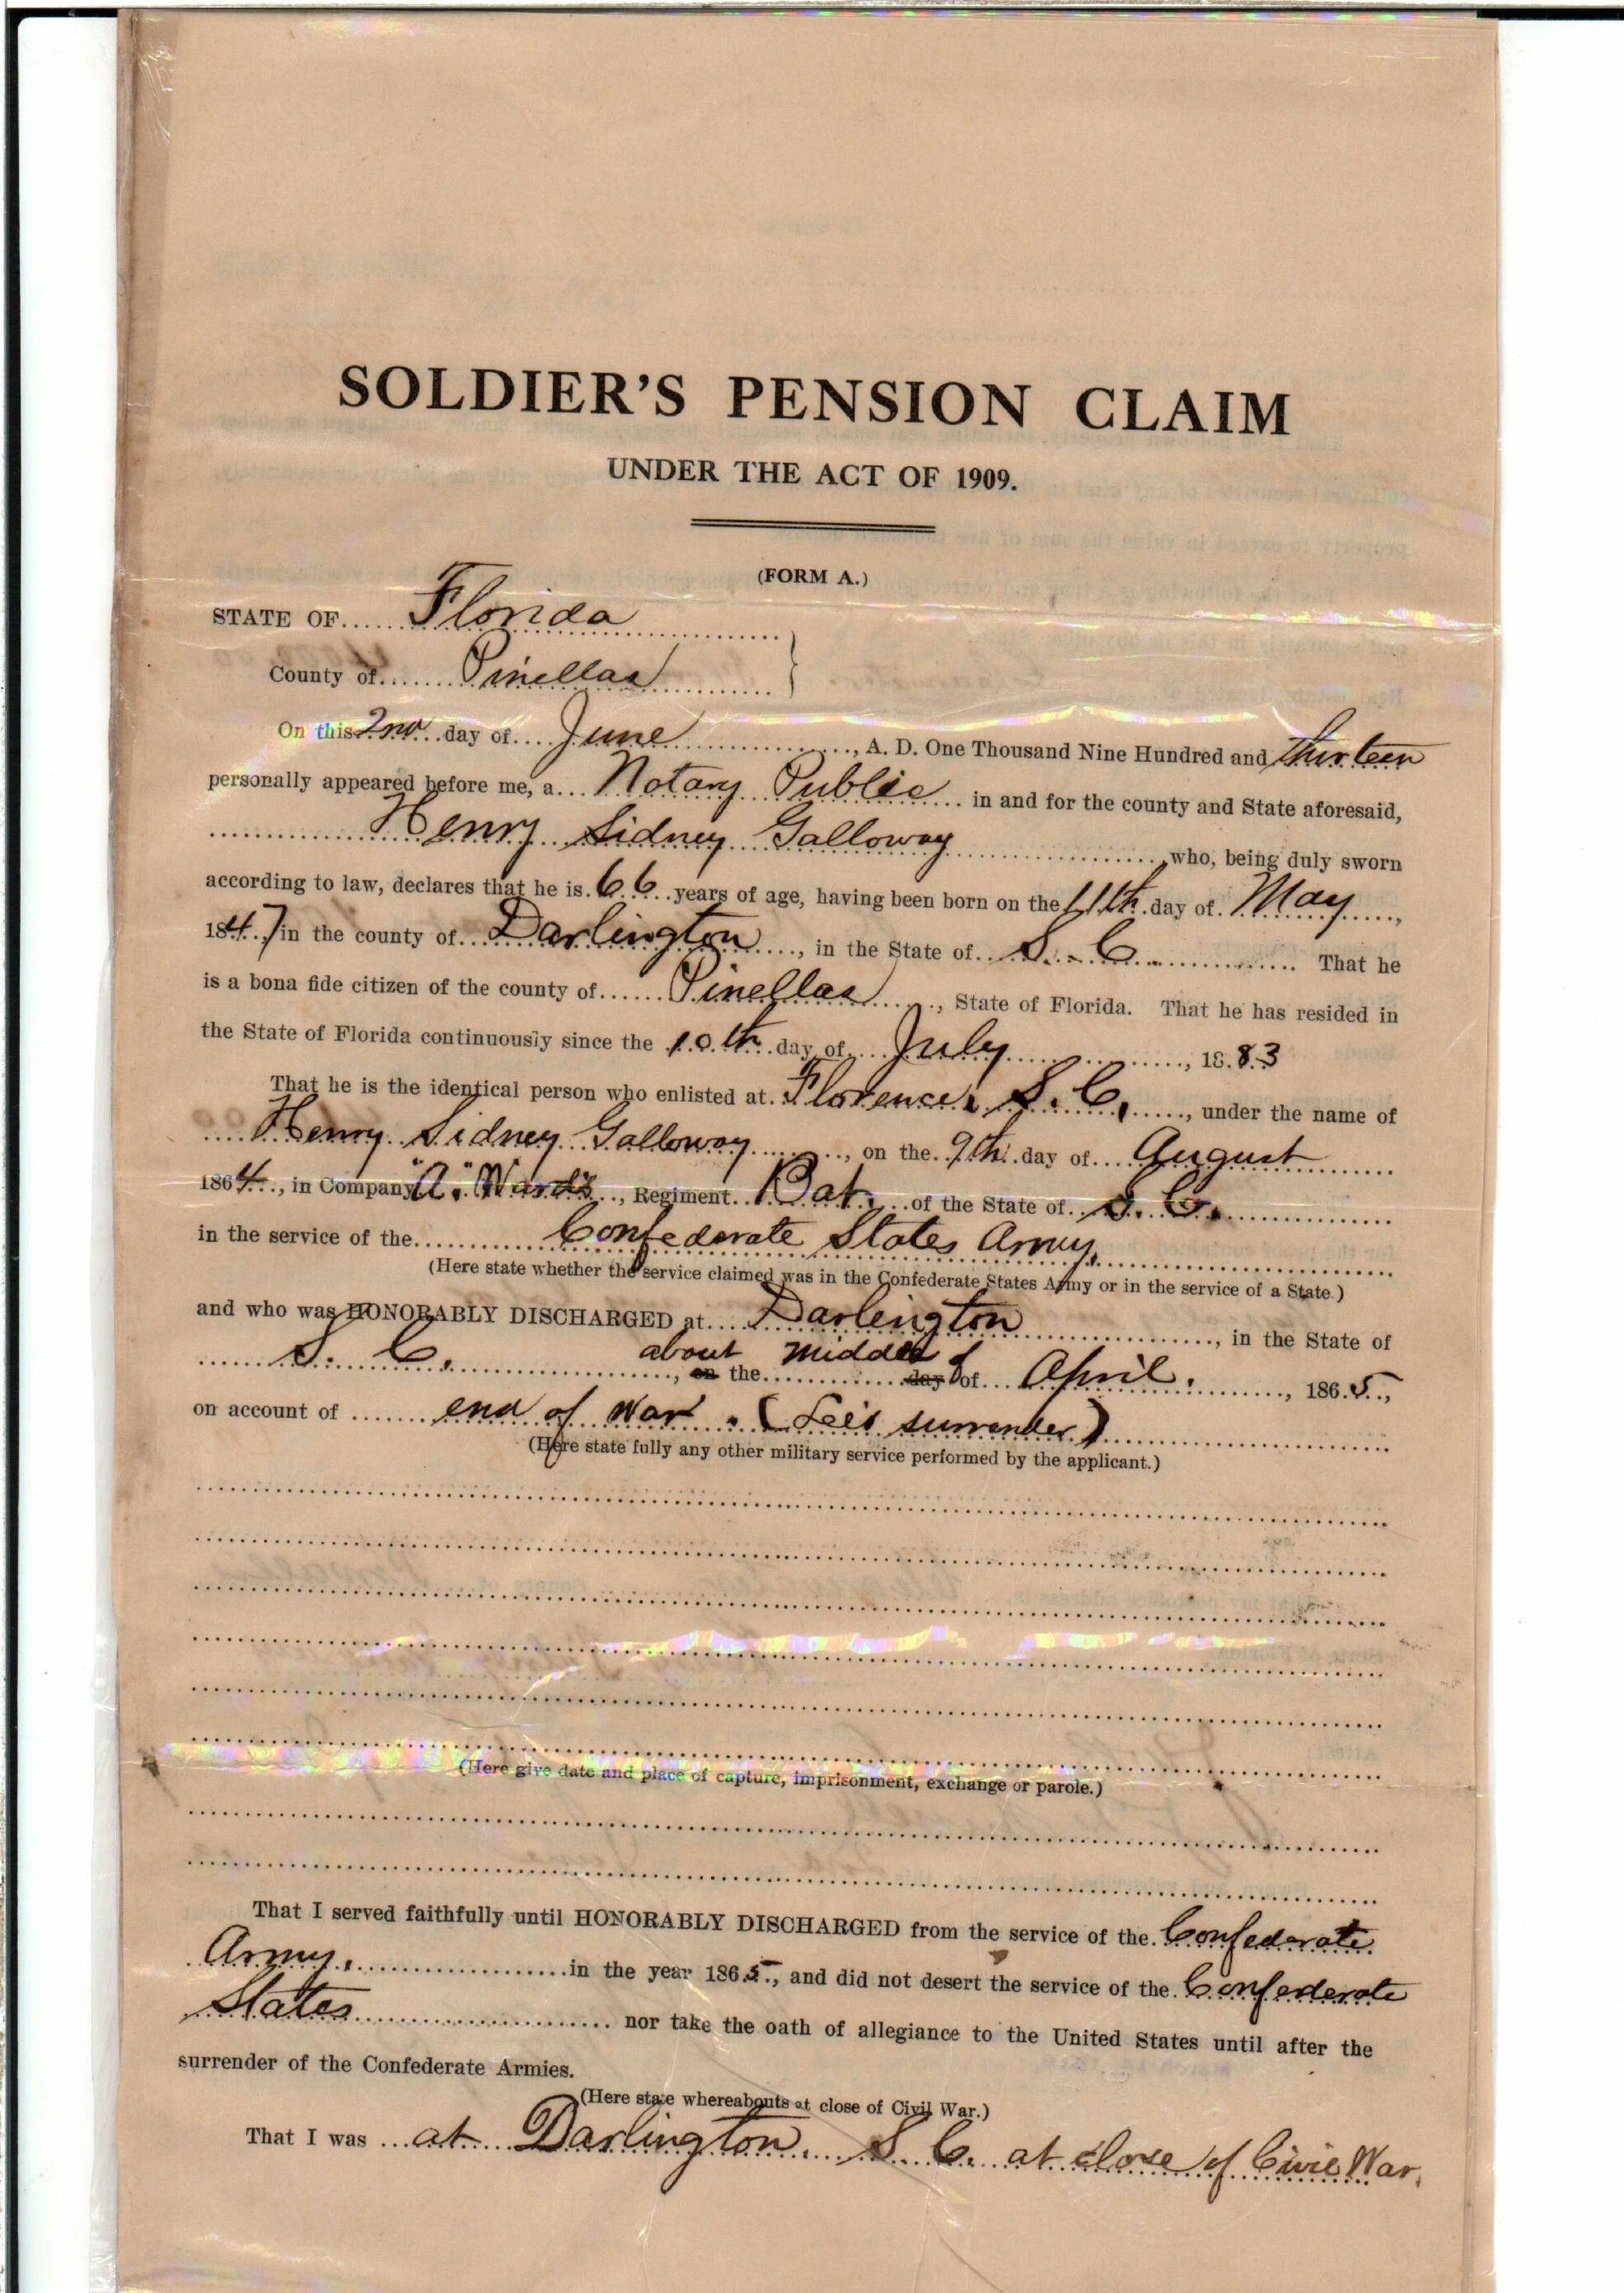 SOLDIER'S PENSION CLAIM
UNDER THE ACT OF 1909.
(FORM A.)
STATE OF Florida
County of Pinellas
On this 2nd day of June, A. D. One Thousand Nine Hundred and thirteen
personally appeared before me, a Notary Public in and for the county and State aforesaid,
Henry Sidney Galloway who, being duly sworn
according to law, declares that he is 66 years of age, having been born on the 11th day of May,
1847, in the county of Darlington, in the State of S. C. That he
is a bona fide citizen of the county of Pinellas, State of Florida. That he has resided in
the State of Florida continuously since the 10th day of July, 1883
That he is the identical person who enlisted at Florence, S. C., under the name of
Henry Sidney Galloway, on the 9th day of August
1864, in Company "A." Ward's, Regiment Bat. of the State of S. C.
in the service of the Confederate States Army.
(Here state whether the service claimed was in the Confederate States Army or in the service of a State.)
and who was HONORABLY DISCHARGED at Darlington, in the State of
S. C., on about the middle day of of April., 1865,
on account of end of war. (Lee's surrender)
(Here state fully any other military service performed by the applicant.)
(Here give date and place of capture, imprisonment, exchange or parole.)
That I served faithfully until HONORABLY DISCHARGED from the service of the Confederate
Army. in the year 1865, and did not desert the service of the Confederate
States nor take the oath of allegiance to the United States until after the
surrender of the Confederate Armies.
(Here state whereabouts at close of Civil War.)
That I was at Darlington, S. C. at close of Civil War.